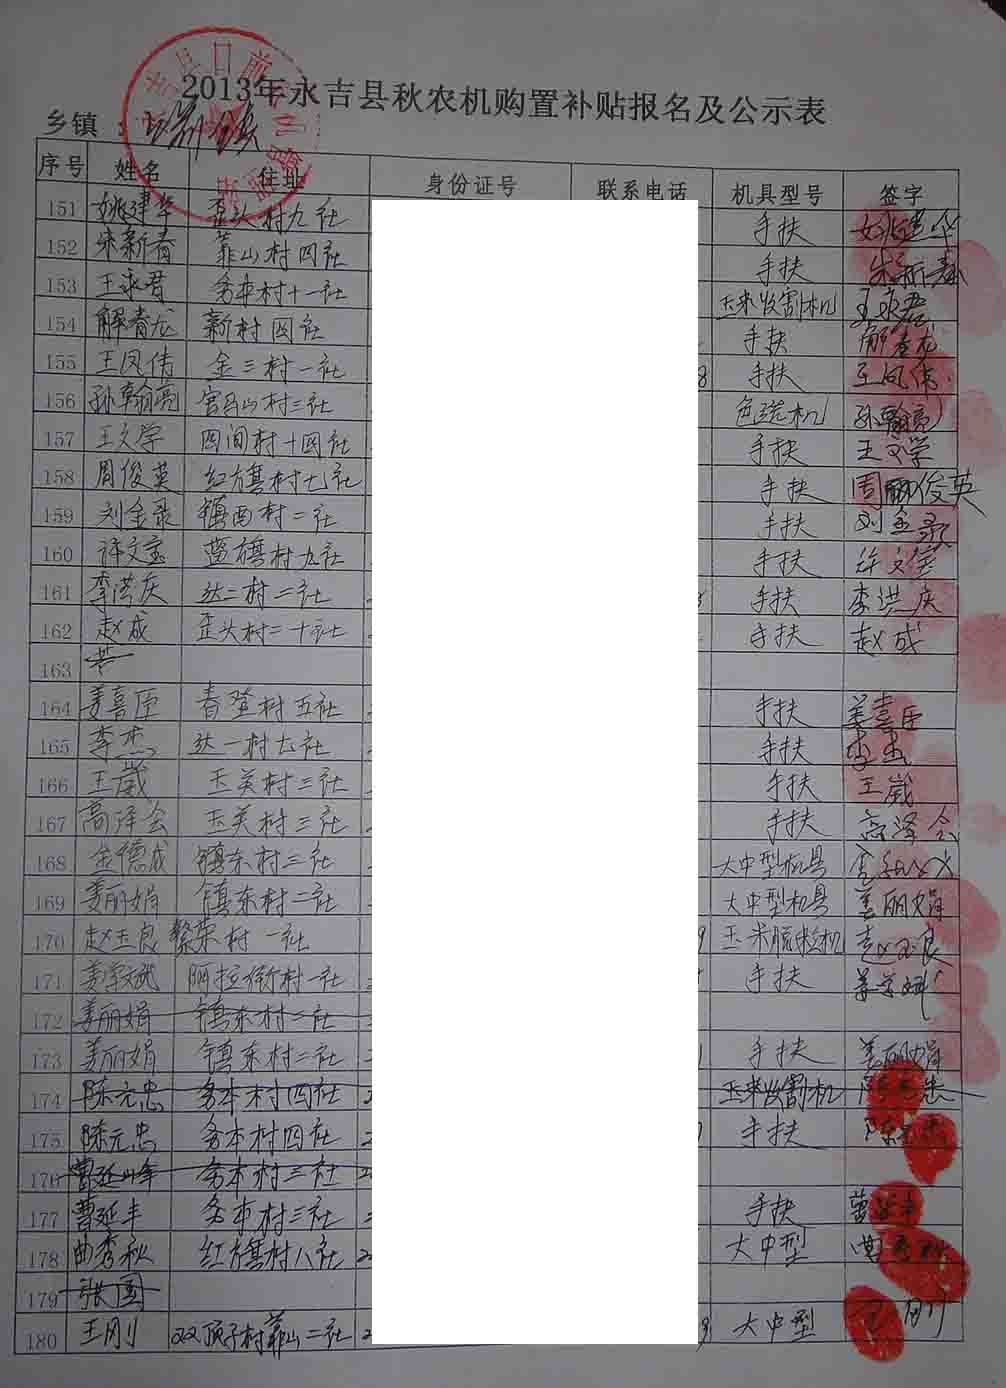 2013年永吉县秋农机购置补贴报名及公示表
乡镇：
序号 姓名 住址 身份证号 联系电话 机具型号 签字
151 姚建华 歪头村九社 手扶 姚建华
152 朱新春 靠山村四社 手扶 朱新春
153 王永君 务本村十一社 玉米收割机 王永君
154 解青龙 新村四社 手扶 解青龙
155 王凤伟 金三村一社 8 手扶 王凤伟
156 孙翰亮 官马山村三社 色选机 孙翰亮
157 王文学 四间村十四社 手扶 王文学
158 周俊英 红旗村七社 手扶 周俊英
159 刘金录 镇西村二社 手扶 刘金录
160 许文宝 蓝旗村九社 手扶 许文宝
161 李洪庆 达二村二社 手扶 李洪庆
162 赵成 歪头村二十社 手扶 赵成
163
164 姜喜臣 春登村五社 手扶 姜喜臣
165 李杰 达一村七社 手扶 李杰
166 王崴 玉美村三社 手扶 王崴
167 高泽会 玉美村三社 手扶 高泽会
168 金德成 镇东村三社 大中型机具
169 姜丽娟 镇东村二社 大中型机具 姜丽娟
170 赵玉良 繁荣村一社 9 玉米脱粒机 赵玉良
171 姜学斌 阿拉街村一社 手扶 姜学斌
172 姜丽娟 镇东村二社
173 姜丽娟 镇东村二社 手扶 姜丽娟
174 陈元忠 务本村四社 2 玉米收割机 陈元忠
175 陈元忠 务本村四社 2 手扶 陈元忠
176 曹延峰 务本村三社 2
177 曹延丰 务本村三社 手扶 曹延丰
178 曲秀秋 红旗村八社 2 大中型 曲秀秋
179 张国
180 王刚 双顶子村靠山二社 2 3 大中型 王刚